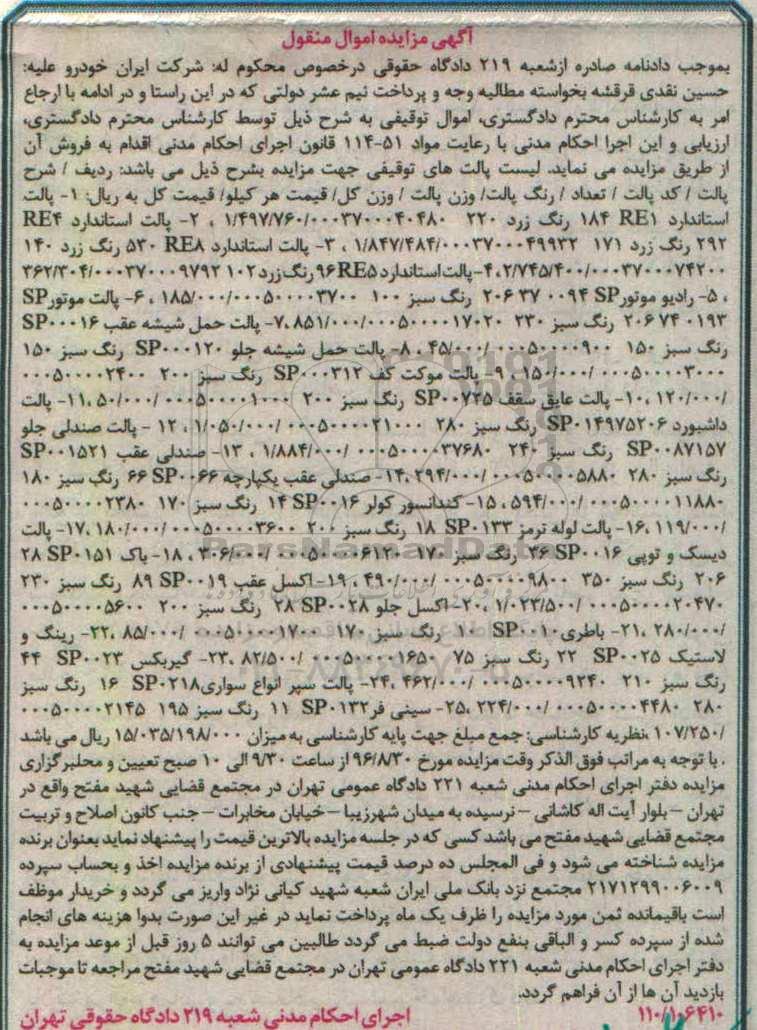 آگهی مزایده اموال منقول
بموجب دادنامه صادره ازشعبه ۲۱۹ دادگاه حقوقی درخصوص محکوم له: شرکت ایران خودرو علیه:
حسین نقدی قرقشه بخواسته مطالبه وجه و پرداخت نیم عشر دولتی که در این راستا و در ادامه با ارجاع
امر به کارشناس محترم دادگستری، اموال توقیفی به شرح ذیل توسط کارشناس محترم دادگستری،
ارزیابی و این اجرا احکام مدنی با رعایت مواد ۵۱-۱۱۴ قانون اجرای احکام مدنی اقدام به فروش آن
از طریق مزایده می نماید. لیست پالت های توقیفی جهت مزایده بشرح ذیل می باشد: ردیف / شرح
پالت / کد پالت / تعداد / رنگ پالت/ وزن پالت / وزن کل/ قیمت هر کیلو/ قیمت کل به ریال: ۱- پالت
استاندارد RE۱ ۱۸۴ رنگ زرد ۲۲۰ ۴۰۴۸۰ ۳۷۰۰۰/۰۰۰ ۱/۴۹۷/۷۶۰/ ، ۲- پالت استاندارد RE۴
۲۹۲ رنگ زرد ۱۷۱ ۴۹۹۳۲ ۳۷۰۰۰/۰۰۰ ۱/۸۴۷/۴۸۴/ ، ۳- پالت استاندارد RE۸ ۵۳۰ رنگ زرد ۱۴۰
۷۴۲۰۰ ۳۷۰۰۰/۰۰۰ ۲/۷۴۵/۴۰۰/ ،۴-پالت استاندارد RE۵ ۹۶ رنگ زرد ۱۰۲ ۹۷۹۲ ۳۷۰۰۰/۰۰۰ ۳۶۲/۳۰۴/
، ۵- رادیو موتور SP ۰۰۹۴ ۳۷ ۲۰۶ رنگ سبز ۱۰۰ ۳۷۰۰ ۵۰۰۰۰/۰۰۰ ۱۸۵/۰۰۰/ ، ۶- پالت موتور SP
۰۱۹۳ ۷۴ ۲۰۶ رنگ سبز ۲۳۰ ۱۷۰۲۰ ۵۰۰۰۰/۰۰۰ ۸۵۱/۰۰۰/ ،۷- پالت حمل شیشه عقب SP۰۰۰۱۶
رنگ سبز ۱۵۰ ۹۰۰ ۵۰۰۰۰/۰۰۰ ۴۵/۰۰۰/ ، ۸- پالت حمل شیشه جلو SP۰۰۰۱۲۰ رنگ سبز ۱۵۰
۳۰۰۰ ۵۰۰۰۰/۰۰۰ ۱۵۰/۰۰۰/ ، ۹- پالت موکت کف SP۰۰۰۳۱۲ رنگ سبز ۲۰۰ ۲۴۰۰ ۵۰۰۰۰/۰۰۰
۱۲۰/۰۰۰/ ،۱۰- پالت عایق سقف SP۰۰۷۲۵ رنگ سبز ۲۰۰ ۱۰۰۰ ۵۰۰۰۰/۰۰۰ ۵۰/۰۰۰/ ،۱۱- پالت
داشبورد SP۰۱۴۹۷۵۲۰۶ رنگ سبز ۲۸۰ ۲۱۰۰۰ ۵۰۰۰۰/۰۰۰ ۱/۰۵۰/۰۰۰/ ، ۱۲ - پالت صندلی جلو
SP۰۰۸۷۱۵۷ رنگ سبز ۲۴۰ ۳۷۶۸۰ ۵۰۰۰۰/۰۰۰ ۱/۸۸۴/۰۰۰/ ، ۱۳- صندلی عقب SP۰۰۱۵۲۱
رنگ سبز ۲۸۰ ۵۸۸۰ ۵۰۰۰۰/۰۰۰ ۲۹۴/۰۰۰/ ،۱۴- صندلی عقب یکپارچه SP۰۰۶۶ ۶۶ رنگ سبز ۱۸۰
۱۱۸۸۰ ۵۰۰۰۰/۰۰۰ ۵۹۴/۰۰۰/ ، ۱۵- کندانسور کولر SP۰۰۱۶ ۱۴ رنگ سبز ۱۷۰ ۲۳۸۰ ۵۰۰۰۰/۰۰۰
۱۱۹/۰۰۰/ ،۱۶- پالت لوله ترمز SP۰۱۳۳ ۱۸ رنگ سبز ۲۰۰ ۳۶۰۰ ۵۰۰۰۰/۰۰۰ ۱۸۰/۰۰۰/ ،۱۷- پالت
دیسک و توپی SP۰۰۱۶ ۳۶ رنگ سبز ۱۷۰ ۶۱۲۰ ۵۰۰۰۰/۰۰۰ ۳۰۶/۰۰۰/ ، ۱۸- باک SP۰۱۵۱ ۲۸
۲۰۶ رنگ سبز ۳۵۰ ۹۸۰۰ ۵۰۰۰۰/۰۰۰ ۴۹۰/۰۰۰/ ، ۱۹- اکسل عقب SP۰۰۱۹ ۸۹ رنگ سبز ۲۳۰
۲۰۴۷۰ ۵۰۰۰۰/۰۰۰ ۱/۰۲۳/۵۰۰/ ،۲۰- اکسل جلو SP۰۰۲۸ ۲۸ رنگ سبز ۲۰۰ ۵۶۰۰ ۵۰۰۰۰/۰۰۰
۲۸۰/۰۰۰/ ،۲۱- باطری SP۰۰۱۰ ۱۰ رنگ سبز ۱۷۰ ۱۷۰۰ ۵۰۰۰۰/۰۰۰ ۸۵/۰۰۰/ ،۲۲- رینگ و
لاستیک SP۰۰۲۵ ۲۲ رنگ سبز ۷۵ ۱۶۵۰ ۵۰۰۰۰/۰۰۰ ۸۲/۵۰۰/ ،۲۳- گیربکس SP۰۰۲۳ ۴۴
رنگ سبز ۲۱۰ ۹۲۴۰ ۵۰۰۰۰/۰۰۰ ۴۶۲/۰۰۰/ ،۲۴- پالت سپر انواع سواری SP۰۲۱۸ ۱۶ رنگ سبز
۲۸۰ ۴۴۸۰ ۵۰۰۰۰/۰۰۰ ۲۲۴/۰۰۰/ ،۲۵- سینی فر SP۰۱۳۲ ۱۱ رنگ سبز ۱۹۵ ۲۱۴۵ ۵۰۰۰۰/۰۰۰
۱۰۷/۲۵۰/ ،نظریه کارشناسی: جمع مبلغ جهت پایه کارشناسی به میزان ۱۵/۰۳۵/۱۹۸/۰۰۰ ریال می باشد
. با توجه به مراتب فوق الذکر وقت مزایده مورخ ۹۶/۸/۳۰ از ساعت ۹/۳۰ الی ۱۰ صبح تعیین و محلبرگزاری
مزایده دفتر اجرای احکام مدنی شعبه ۲۲۱ دادگاه عمومی تهران در مجتمع قضایی شهید مفتح واقع در
تهران – بلوار آیت اله کاشانی – نرسیده به میدان شهرزیبا – خیابان مخابرات – جنب کانون اصلاح و تربیت
مجتمع قضایی شهید مفتح می باشد کسی که در جلسه مزایده بالاترین قیمت را پیشنهاد نماید بعنوان برنده
مزایده شناخته می شود و فی المجلس ده درصد قیمت پیشنهادی از برنده مزایده اخذ و بحساب سپرده
۲۱۷۱۲۹۹۰۰۶۰۰۹ مجتمع نزد بانک ملی ایران شعبه شهید کیانی نژاد واریز می گردد و خریدار موظف
است باقیمانده ثمن مورد مزایده را ظرف یک ماه پرداخت نماید در غیر این صورت بدوا هزینه های انجام
شده از سپرده کسر و الباقی بنفع دولت ضبط می گردد طالبین می توانند ۵ روز قبل از موعد مزایده به
دفتر اجرای احکام مدنی شعبه ۲۲۱ دادگاه عمومی تهران در مجتمع قضایی شهید مفتح مراجعه تا موجبات
بازدید آن ها از آن فراهم گردد.
۱۱۰/۱۰۶۴۱۰ اجرای احکام مدنی شعبه ۲۱۹ دادگاه حقوقی تهران